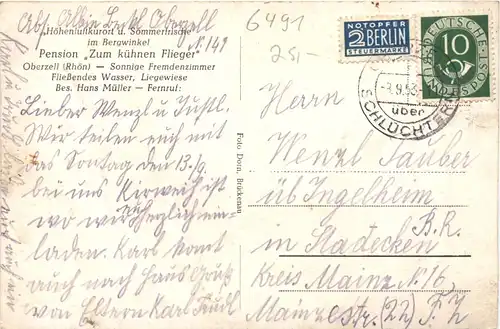 Abs. Albin Beckl Oberzell
N. 149
Höhenluftkurort u. Sommerfrische
im Bergwinkel
Pension „Zum kühnen Flieger"
Oberzell (Rhön) — Sonnige Fremdenzimmer
Fließendes Wasser, Liegewiese
Bes. Hans Müller — Fernruf:
Lieber Wenzl u. Justl.
Wir teilen euch mit
das Sontag den 13/9
bei uns Kirweih ist
wo wir euch herzlich ein-
laden. Karl komt
auch nach Haus Gruß
von Eltern Karl
Foto Dorn, Brückenau
6491
25,-
NOTOPFER
2 BERLIN
STEUERMARKE
DEUTSCHE BUNDESPOST
10
-8.9.53-
über
SCHLÜCHTERN
Herrn
Wenzl Sauber
üb Ingelheim
in Stadecken
B.R.
Kreis Mainz N. 16
Mainzerstr. (22) F. Z